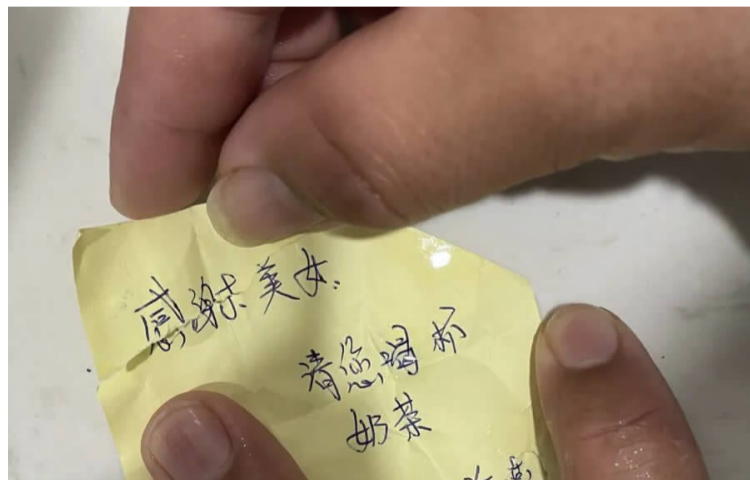 感谢美女.
请您喝杯
奶茶